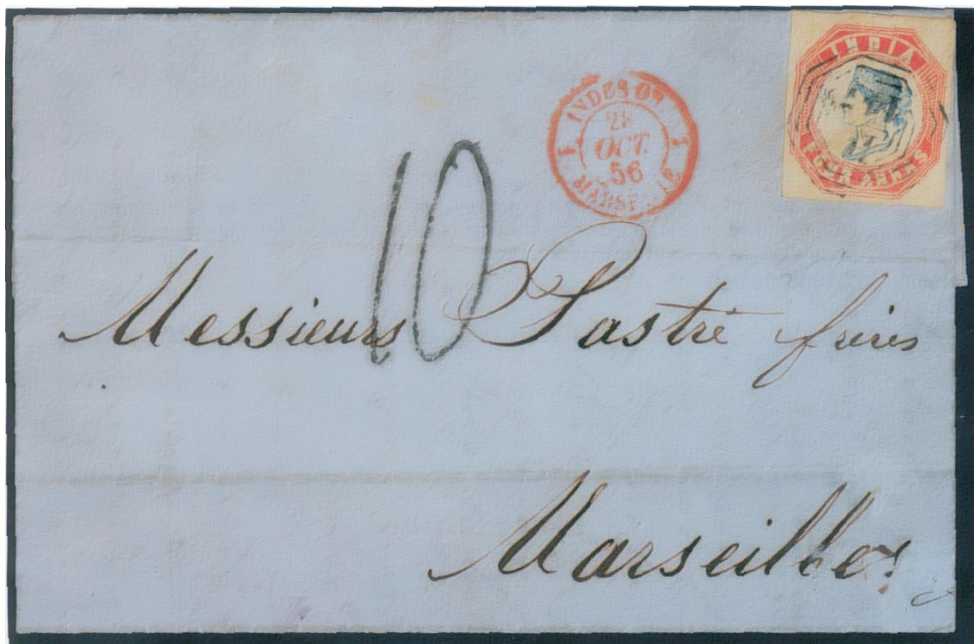 INDIA
FOUR ANNAS
INDES OR.
28
OCT.
56
MARSEILLE
10
Messieurs Pastré frères
Marseilles